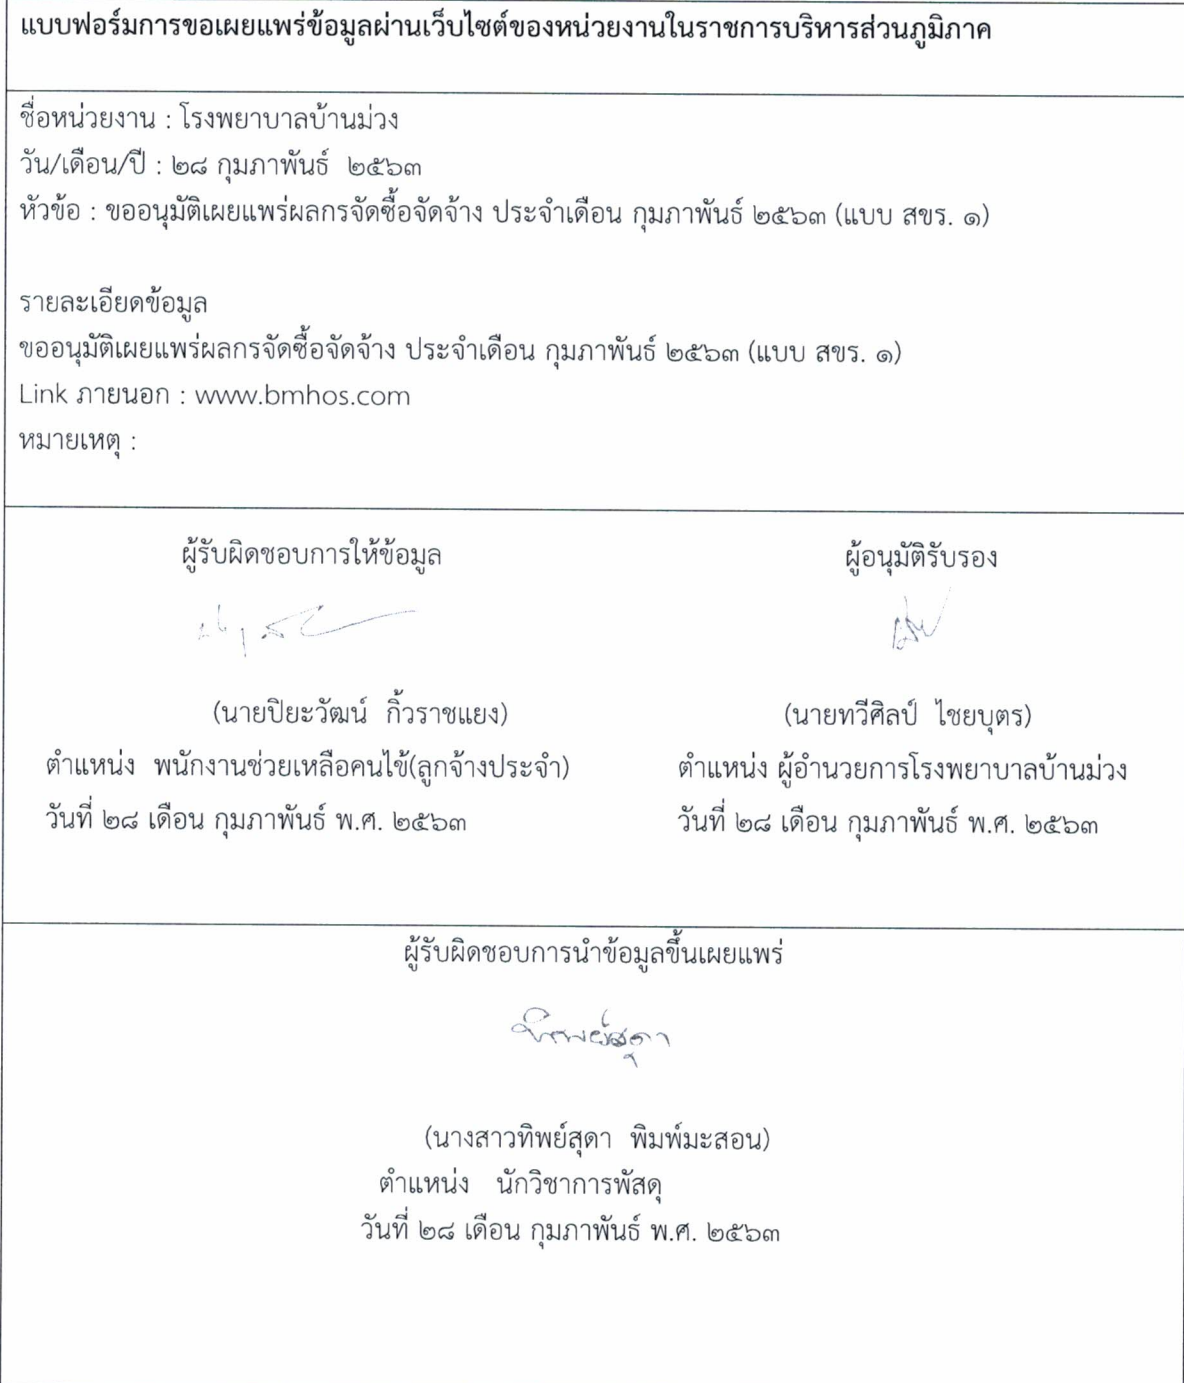 แบบฟอร์มการขอเผยแพร่ข้อมูลผ่านเว็บไซต์ของหน่วยงานในราชการบริหารส่วนภูมิภาค
ชื่อหน่วยงาน : โรงพยาบาลบ้านม่วง
วัน/เดือน/ปี : ๒๘ กุมภาพันธ์ ๒๕๖๓
หัวข้อ : ขออนุมัติเผยแพร่ผลกรจัดซื้อจัดจ้าง ประจำเดือน กุมภาพันธ์ ๒๕๖๓ (แบบ สขร. ๑)
รายละเอียดข้อมูล
ขออนุมัติเผยแพร่ผลกรจัดซื้อจัดจ้าง ประจำเดือน กุมภาพันธ์ ๒๕๖๓ (แบบ สขร. ๑)
Link ภายนอก : www.bmhos.com
หมายเหตุ :
ผู้รับผิดชอบการให้ข้อมูล
(นายปิยะวัฒน์ กิ้วราชแยง)
ตำแหน่ง พนักงานช่วยเหลือคนไข้(ลูกจ้างประจำ)
วันที่ ๒๘ เดือน กุมภาพันธ์ พ.ศ. ๒๕๖๓
ผู้อนุมัติรับรอง
(นายทวีศิลป์ ไชยบุตร)
ตำแหน่ง ผู้อำนวยการโรงพยาบาลบ้านม่วง
วันที่ ๒๘ เดือน กุมภาพันธ์ พ.ศ. ๒๕๖๓
ผู้รับผิดชอบการนำข้อมูลขึ้นเผยแพร่
ทิพย์สุดา
(นางสาวทิพย์สุดา พิมพ์มะสอน)
ตำแหน่ง นักวิชาการพัสดุ
วันที่ ๒๘ เดือน กุมภาพันธ์ พ.ศ. ๒๕๖๓